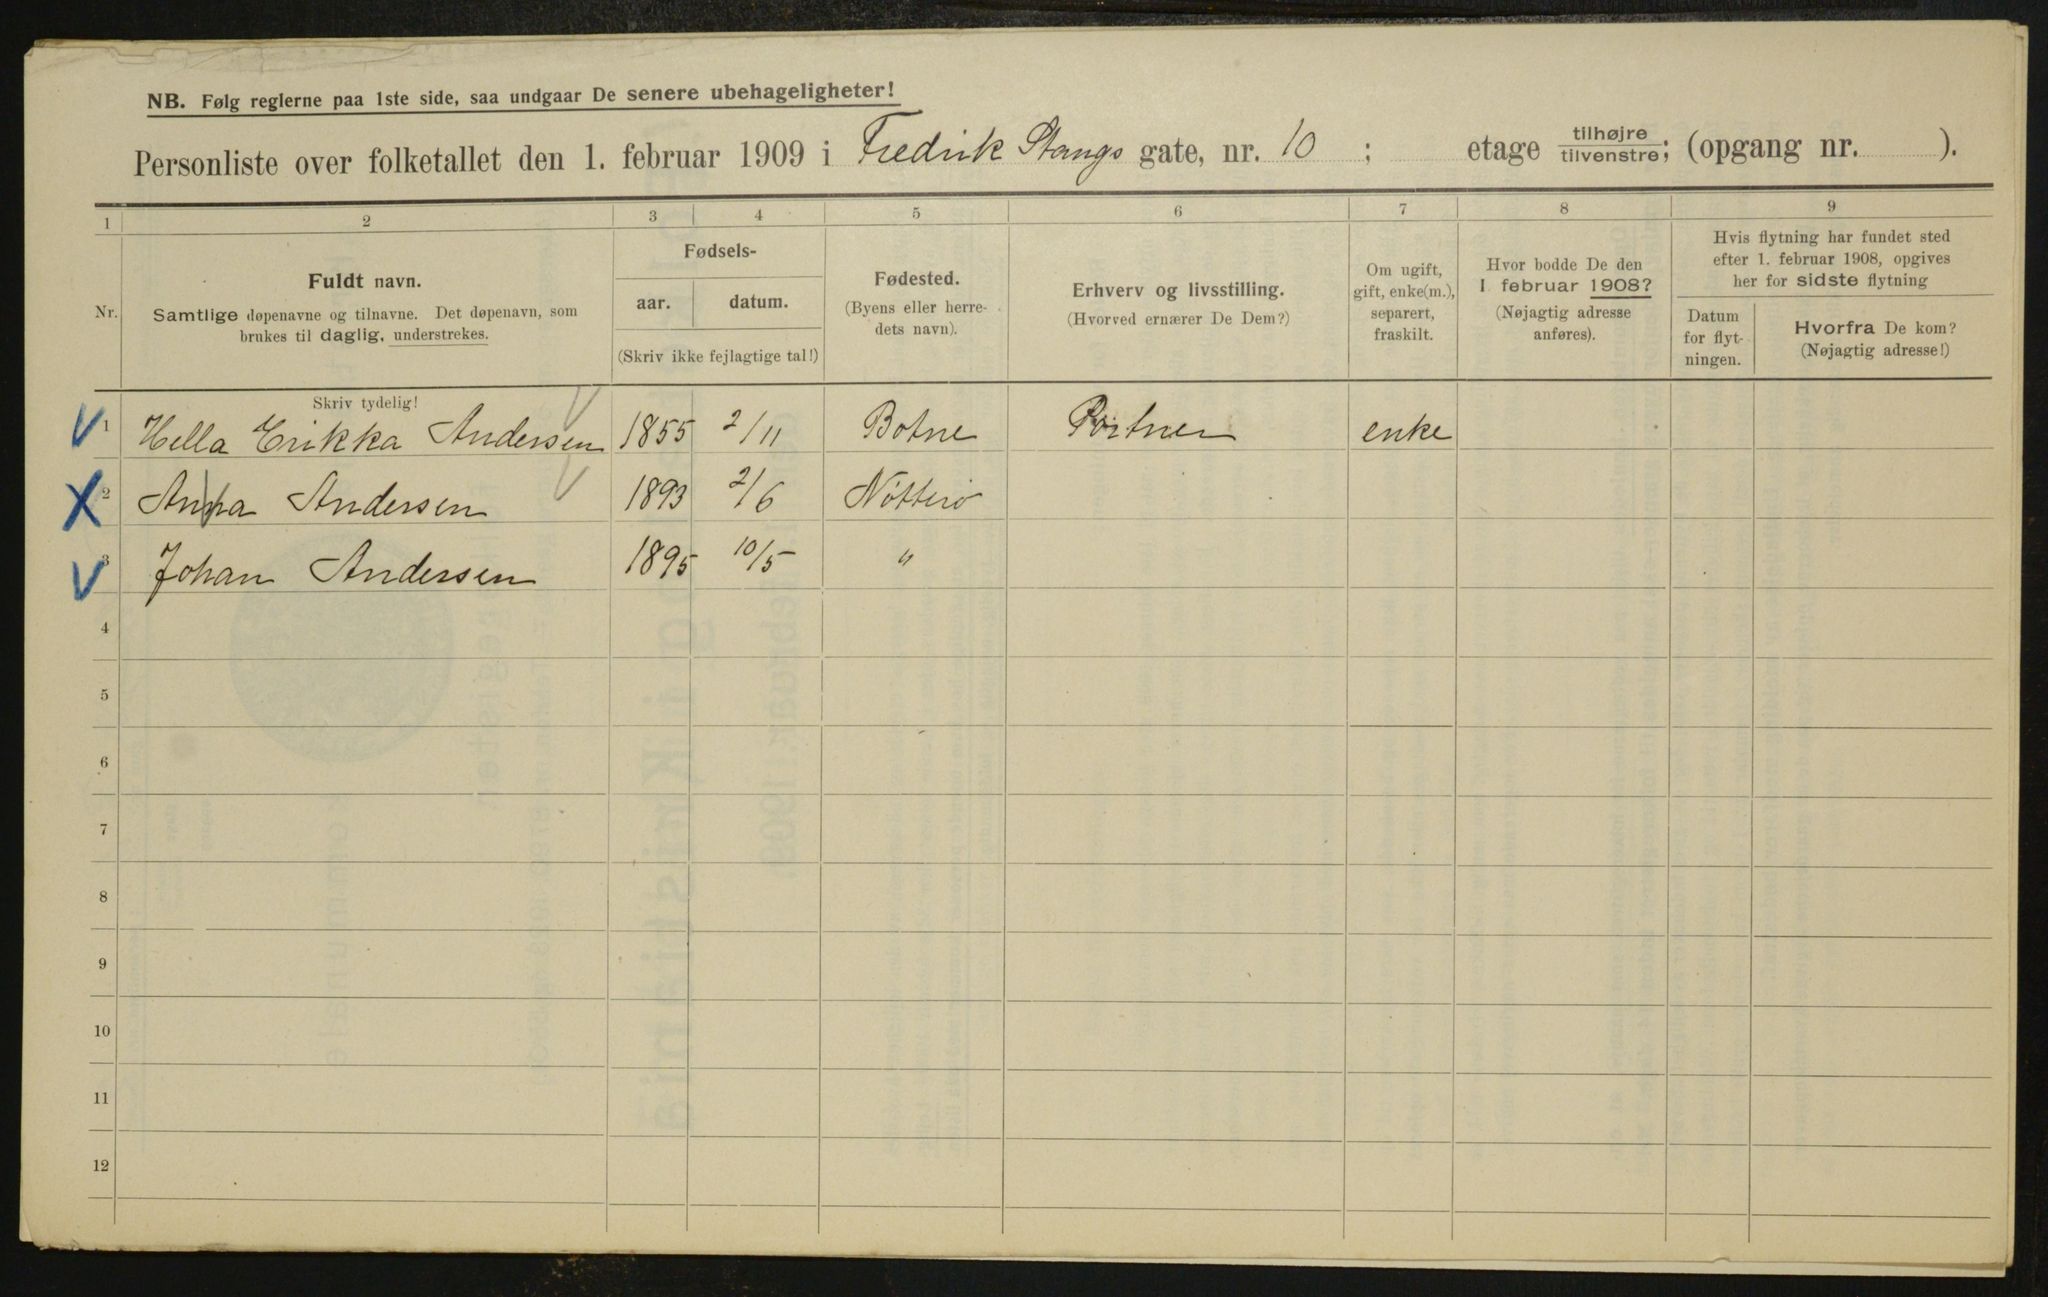 NB. Følg reglerne paa 1ste side, saa undgaar De senere ubehageligheter!
Personliste over folketallet den 1. februar 1909 i Fredrik Stangs gate, nr. 10 ; etage tilhøjre/tilvenstre; (opgang nr. ).
1 2 3 4 5 6 7 8 9
Nr.
Fuldt navn.
Samtlige døpenavne og tilnavne. Det døpenavn, som
brukes til daglig, understrekes.
Fødsels-
aar. datum.
(Skriv ikke fejlagtige tal!)
Fødested.
(Byens eller herre-
dets navn).
Erhverv og livsstilling.
(Hvorved ernærer De Dem?)
Om ugift,
gift, enke(m.),
separert,
fraskilt.
Hvor bodde De den
1 februar 1908?
(Nøjagtig adresse
anføres).
Hvis flytning har fundet sted
efter 1. februar 1908, opgives
her for sidste flytning
Datum
for flyt-
ningen.
Hvorfra De kom?
(Nøjagtig adresse!)
Skriv tydelig!
1 Hella Erikka Andersen 1855 2/11 Botne Portner enke
2 Anna Andersen 1893 2/6 Nøtterø
3 Johan Andersen 1895 10/5 "
4
5
6
7
8
9
10
11
12